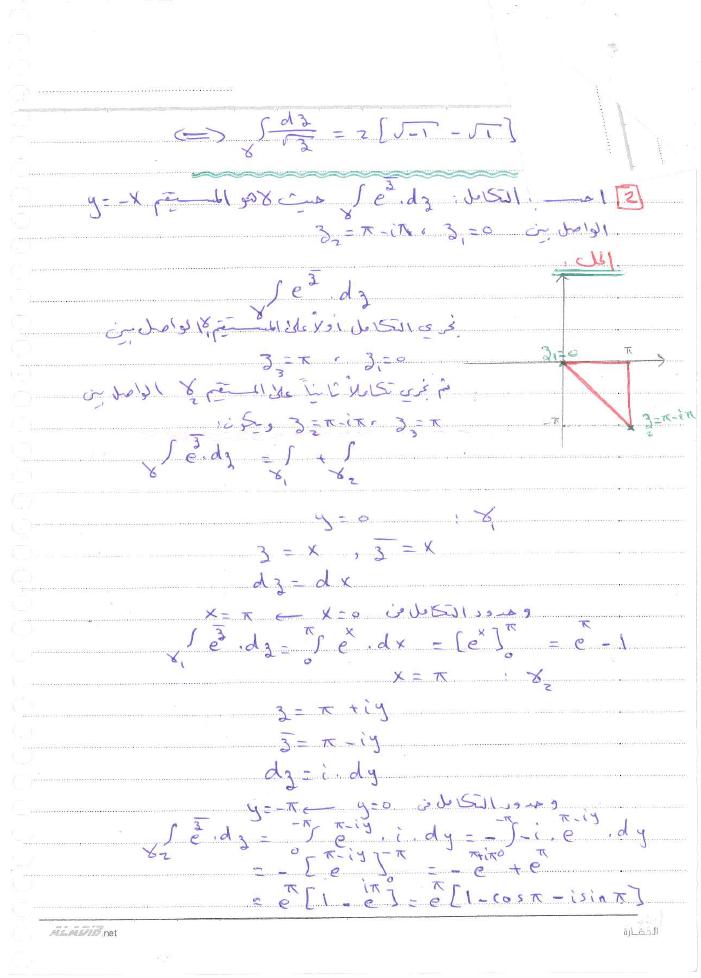 ⇐⇒ ∫_γ dz/√z = 2 [√-1 - √1]
[2] احسب التكامل: ∫_γ e^z̄ . dz حيث γ هو المستقيم y = -x
الواصل بين z₁ = 0 ، z₂ = π - iπ
الحل:
∫_γ e^z̄ . dz
نجري التكامل أولاً على المستقيم γ₁ الواصل بين
z₁ = 0 ، z₃ = π
ثم نجري تكاملاً ثانياً على المستقيم γ₂ الواصل بين
z₃ = π ، z₂ = π - iπ ويكون:
z₁ = 0
π
-π
z₂ = π - iπ
∫_γ e^z̄ . dz = ∫_γ₁ + ∫_γ₂
γ₁ : y = 0
z = x , z̄ = x
dz = dx
وحدود التكامل من x = 0 ← x = π
∫_γ₁ e^z̄ . dz = ∫_0^π e^x . dx = [e^x]_0^π = e^π - 1
γ₂ : x = π
z = π + iy
z̄ = π - iy
dz = i . dy
وحدود التكامل من y = 0 ← y = -π
∫_γ₂ e^z̄ . dz = ∫_0^-π e^(π-iy) . i . dy = - ∫_0^-π -i . e^(π-iy) . dy
= - [e^(π-iy)]_0^-π = - e^(π+iπ) + e^π
= e^π [1 - e^iπ] = e^π [1 - cos π - i sin π]
ALMADIA.net
الحضارة